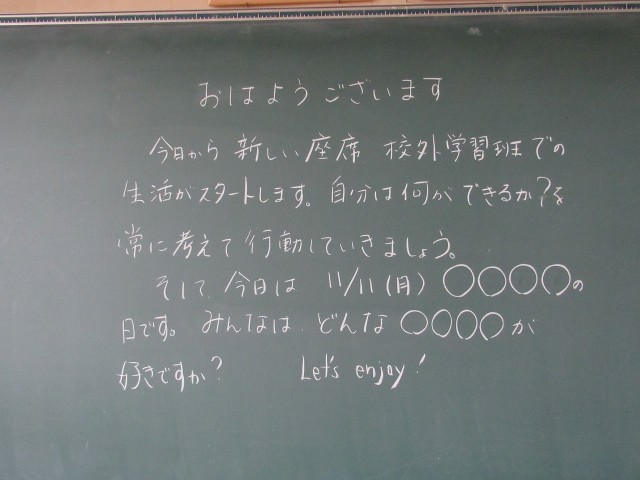 おはようございます
今日から 新しい座席 校外学習班での
生活がスタートします。自分は何ができるか?を
常に考えて行動していきましょう。
そして、今日は 11/11(月) 〇〇〇〇の
日です。みんなは、どんな 〇〇〇〇が
好きですか? Let's enjoy!